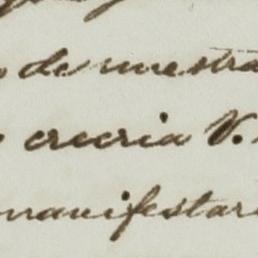 de nuestra
creeria V.
manifestar